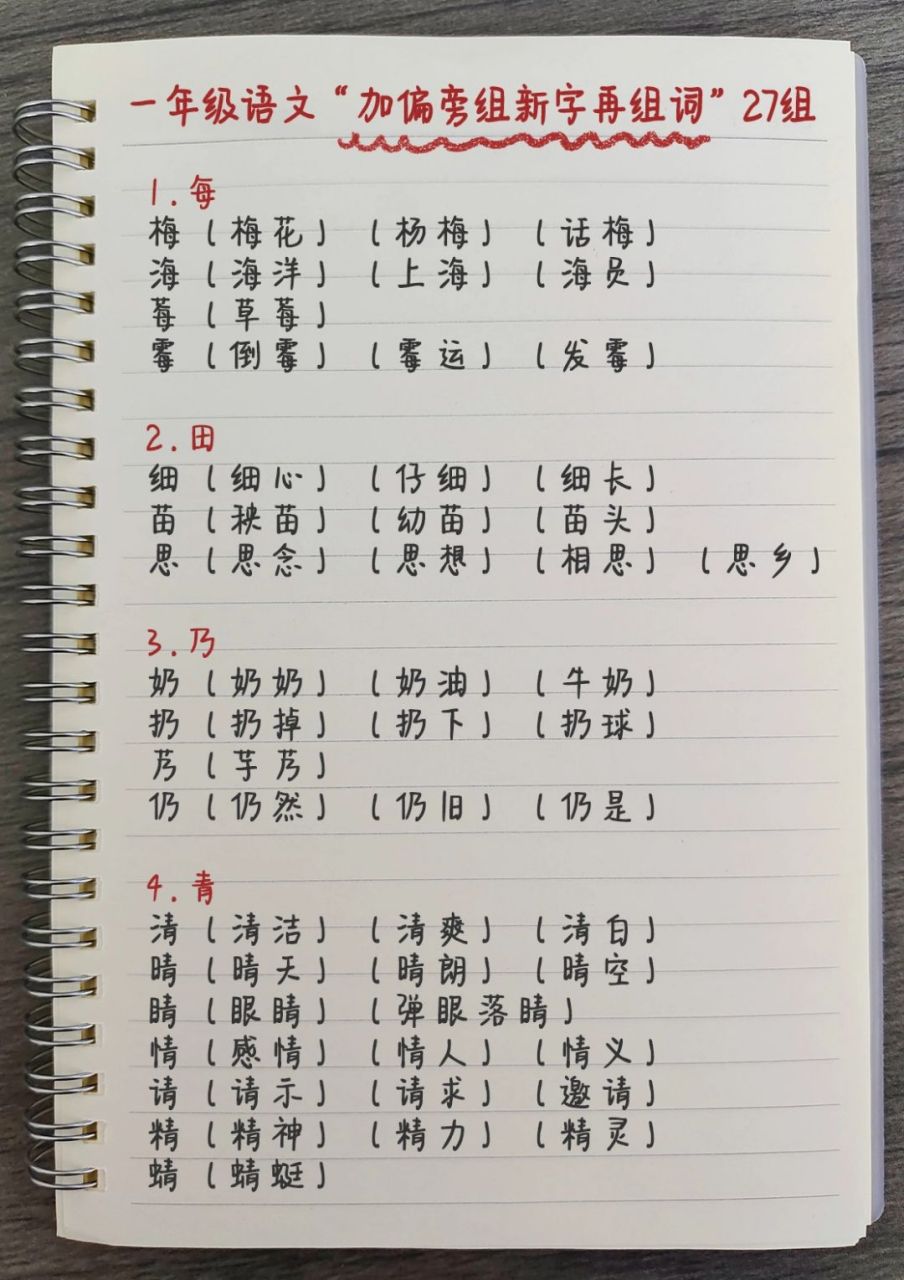 一年级语文“加偏旁组新字再组词”27组
1.每
梅（梅花）（杨梅）（话梅）
海（海洋）（上海）（海员）
莓（草莓）
霉（倒霉）（霉运）（发霉）
2.田
细（细心）（仔细）（细长）
苗（秧苗）（幼苗）（苗头）
思（思念）（思想）（相思）（思乡）
3.乃
奶（奶奶）（奶油）（牛奶）
扔（扔掉）（扔下）（扔球）
艿（芋艿）
仍（仍然）（仍旧）（仍是）
4.青
清（清洁）（清爽）（清白）
晴（晴天）（晴朗）（晴空）
睛（眼睛）（弹眼落睛）
情（感情）（情人）（情义）
请（请示）（请求）（邀请）
精（精神）（精力）（精灵）
蜻（蜻蜓）